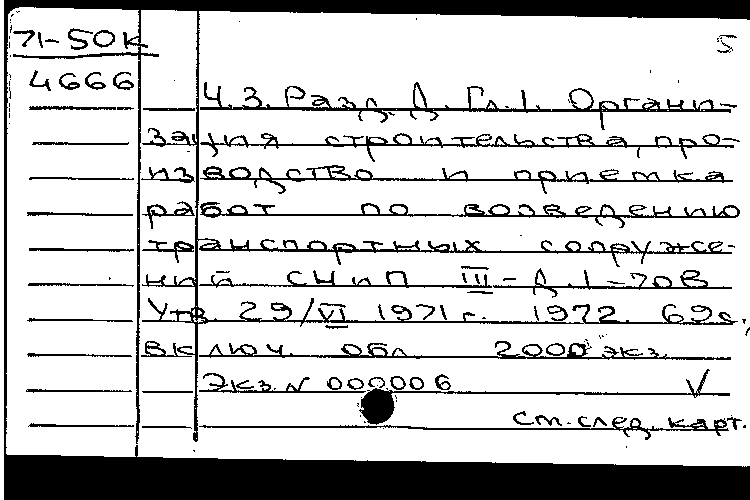 71-50К 5
4666
Ч.3. Разд. Д. Гл.1. Органи-
зация строительства, про-
изводство и приемка
работ по возведению
транспортных сооруже-
ний. СНиП III-Д.1-70В
Утв. 29/VI 1971г. 1972. 69с.,
включ. обл. 2000 экз.
Экз. N 000006 √
см. след. карт.